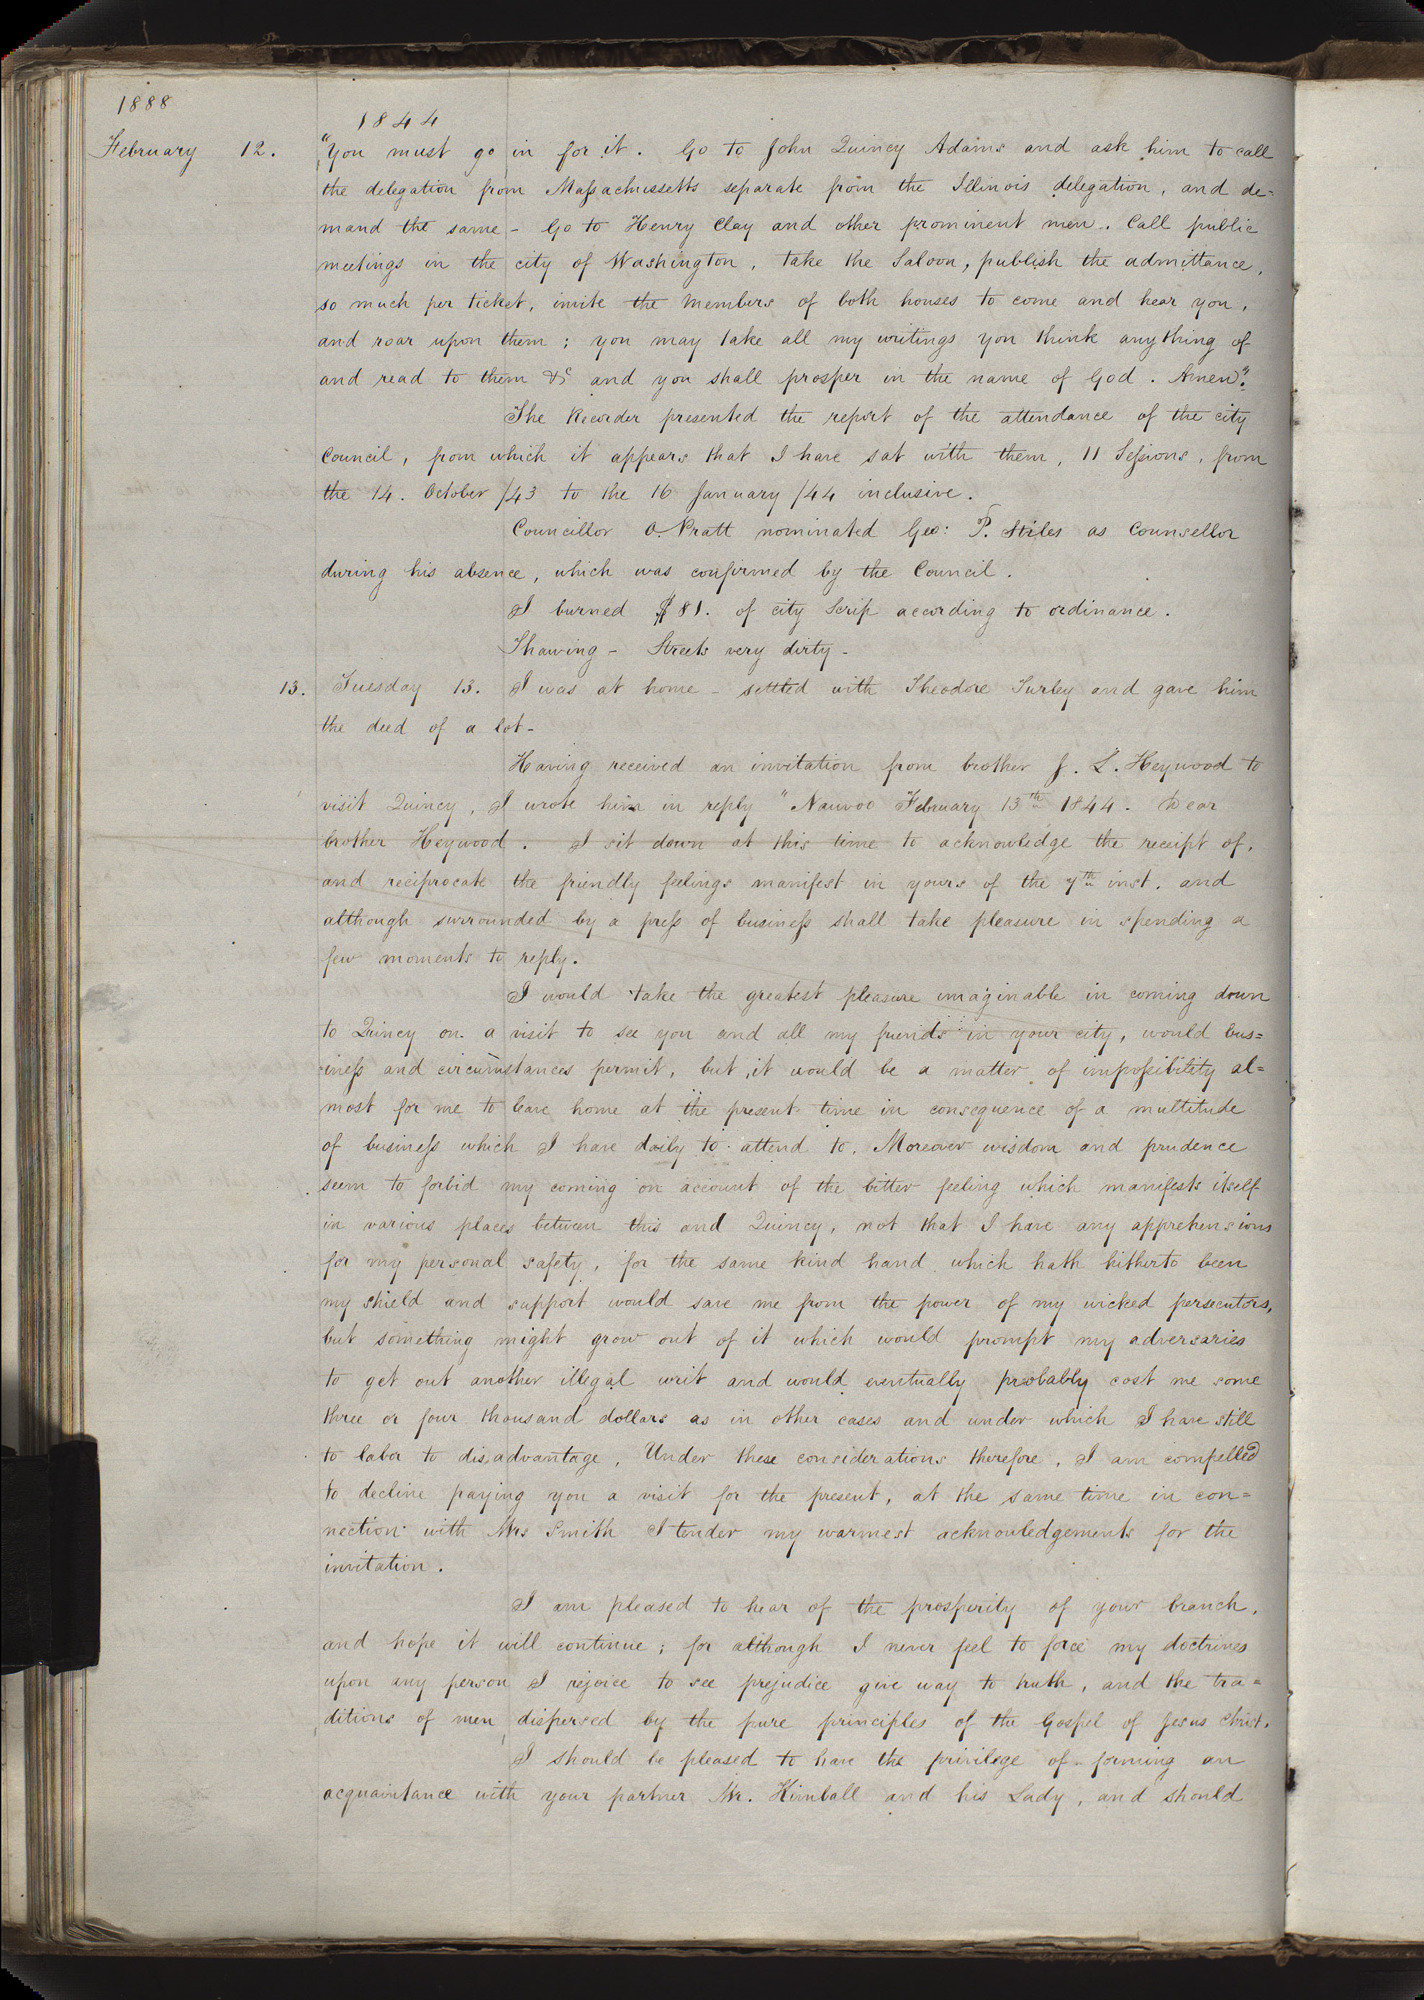 1888
1844
February 12. "You must go in for it. Go to John Quincy Adams and ask him to call
the delegation from Massachussetts separate from the Illinois delegation, and de=
mand the same - Go to Henry Clay and other prominent men. Call public
meetings in the city of Washington, take the Saloon, publish the admittance,
so much per ticket, invite the members of both houses to come and hear you,
and roar upon them; you may take all my writings you think anything of
and read to them &c and you shall prosper in the name of God. Amen".
The Recorder presented the report of the attendance of the city
Council, from which it appears that I have sat with them, 11 Sessions, from
the 14. October /43 to the 16 January /44 inclusive.
Councillor O. Pratt nominated Geo: P. Stiles as Counsellor
during his absence, which was confirmed by the Council.
I burned $81. of city Scrip according to ordinance.
Thawing - Streets very dirty -
13. Tuesday 13. I was at home - settled with Theodore Turley and gave him
the deed of a lot -
Having received an invitation from brother J. L. Heywood to
visit Quincy, I wrote him in reply "Nauvoo February 13th 1844. Dear
brother Heywood. I sit down at this time to acknowledge the receipt of,
and reciprocate the friendly feelings manifest in yours of the 7th inst. and
although surrounded by a press of business shall take pleasure in spending a
few moments to reply.
I would take the greatest pleasure imaginable in coming down
to Quincy on a visit to see you and all my friends in your city, would bus=
iness and circumstances permit, but it would be a matter of impossibility al=
most for me to leave home at the present time in consequence of a multitude
of business which I have daily to attend to. Moreover wisdom and prudence
seem to forbid my coming on account of the bitter feeling which manifests itself
in various places between this and Quincy, not that I have any apprehensions
for my personal safety, for the same kind hand which hath hitherto been
my shield and support would save me from the power of my wicked persecutors,
but something might grow out of it which would prompt my adversaries
to get out another illegal writ and would eventually probably cost me some
three or four thousand dollars as in other cases and under which I have still
to labor to disadvantage, Under these considerations therefore, I am compelled
to decline paying you a visit for the present, at the same time in con=
nection with Mrs Smith I tender my warmest acknowledgements for the
invitation.
I am pleased to hear of the prosperity of your branch,
and hope it will continue; for although I never feel to force my doctrines
upon any person I rejoice to see prejudice give way to truth, and the tra=
ditions of men dispersed by the pure principles of the Gospel of Jesus Christ.
I should be pleased to have the privilege of forming an
acquaintance with your partner Mr. Kimball and his Lady, and should